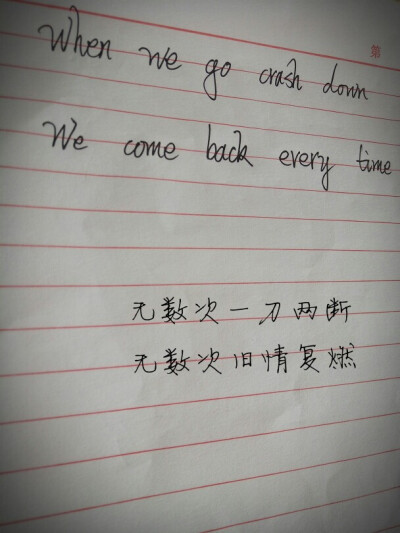 第
When we go crash down
We come back every time
无数次一刀两断
无数次旧情复燃